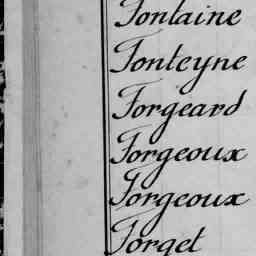 Fontaine
Fonteyne
Forgeard
Forgeoux
Forgeoux
Forget